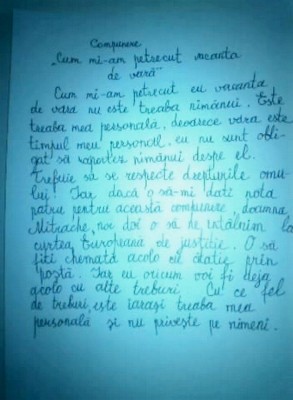 Compunere
„Cum mi-am petrecut vacanta
de vară”
Cum mi-am petrecut eu vacanta
de vara nu este treaba nimănui. Este
treaba mea personală, deoarece vara este
timpul meu personal. eu nu sunt obli-
gat să raportez nimănui despre el.
Trebuie să se respecte drepturile omu-
lui! Iar dacă o să-mi dati nota
patru pentru această compunere, doamna
Mitrache, noi doi o să ne întâlnim la
curtea Europeană de justiție. O să
fiti chemată acolo cu citatie prin
postă. Iar eu oricum voi fi deja
acolo cu alte treburi. Cu ce fel
de treburi, este iarasi treaba mea
personală și nu privește pe nimeni.